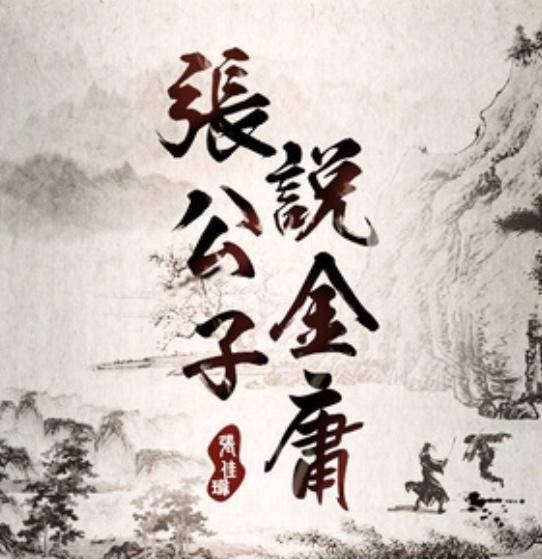 張公子
說金庸
張佳瑋